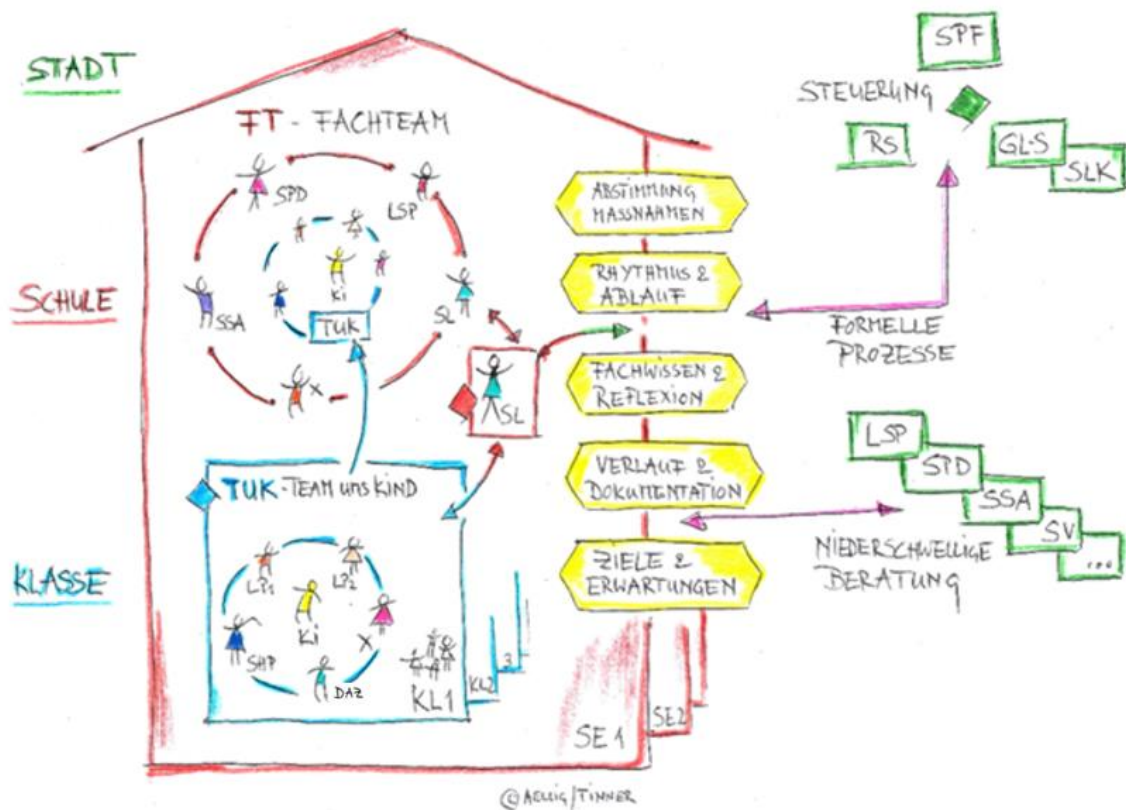 STADT
SCHULE
KLASSE
FT - FACHTEAM
SPD
LSP
SSA
Ki
SL
TUK
X
SL
TUK - TEAM UMS KIND
LP1
LP2
Ki
SHP
X
DAZ
KL1
KL2
3
SE1
SE2
ABSTIMMUNG
MASSNAHMEN
RHYTHMUS &
ABLAUF
FACHWISSEN &
REFLEXION
VERLAUF &
DOKUMENTATION
ZIELE &
ERWARTUNGEN
SPF
STEUERUNG
RS
GL-S
SLK
FORMELLE
PROZESSE
LSP
SPD
SSA
SV
...
NIEDERSCHWELLIGE
BERATUNG
© AELLIG/TINNER